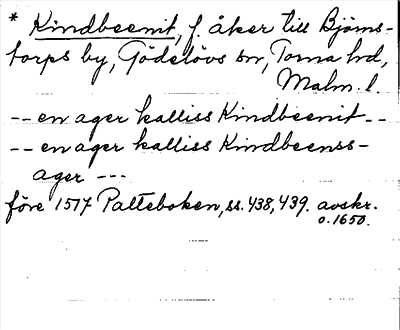 * Kindbeenit, f. åker till Björns-
torps by, Gödelövs sn, Torna hd,
Malm. l.
-- en ager kalliss Kindbeenit --
-- en ager kalliss Kindbeenss-
ager ---
före 1517 Palteboken, ss. 438, 439. avskr.
o. 1650.